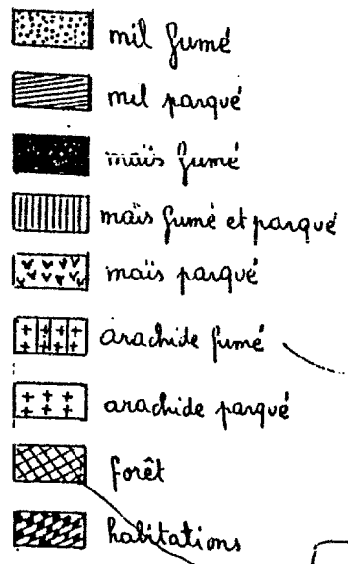 mil fumé
mil parqué
maïs fumé
maïs fumé et parqué
maïs parqué
arachide fumé
arachide parqué
forêt
habitations